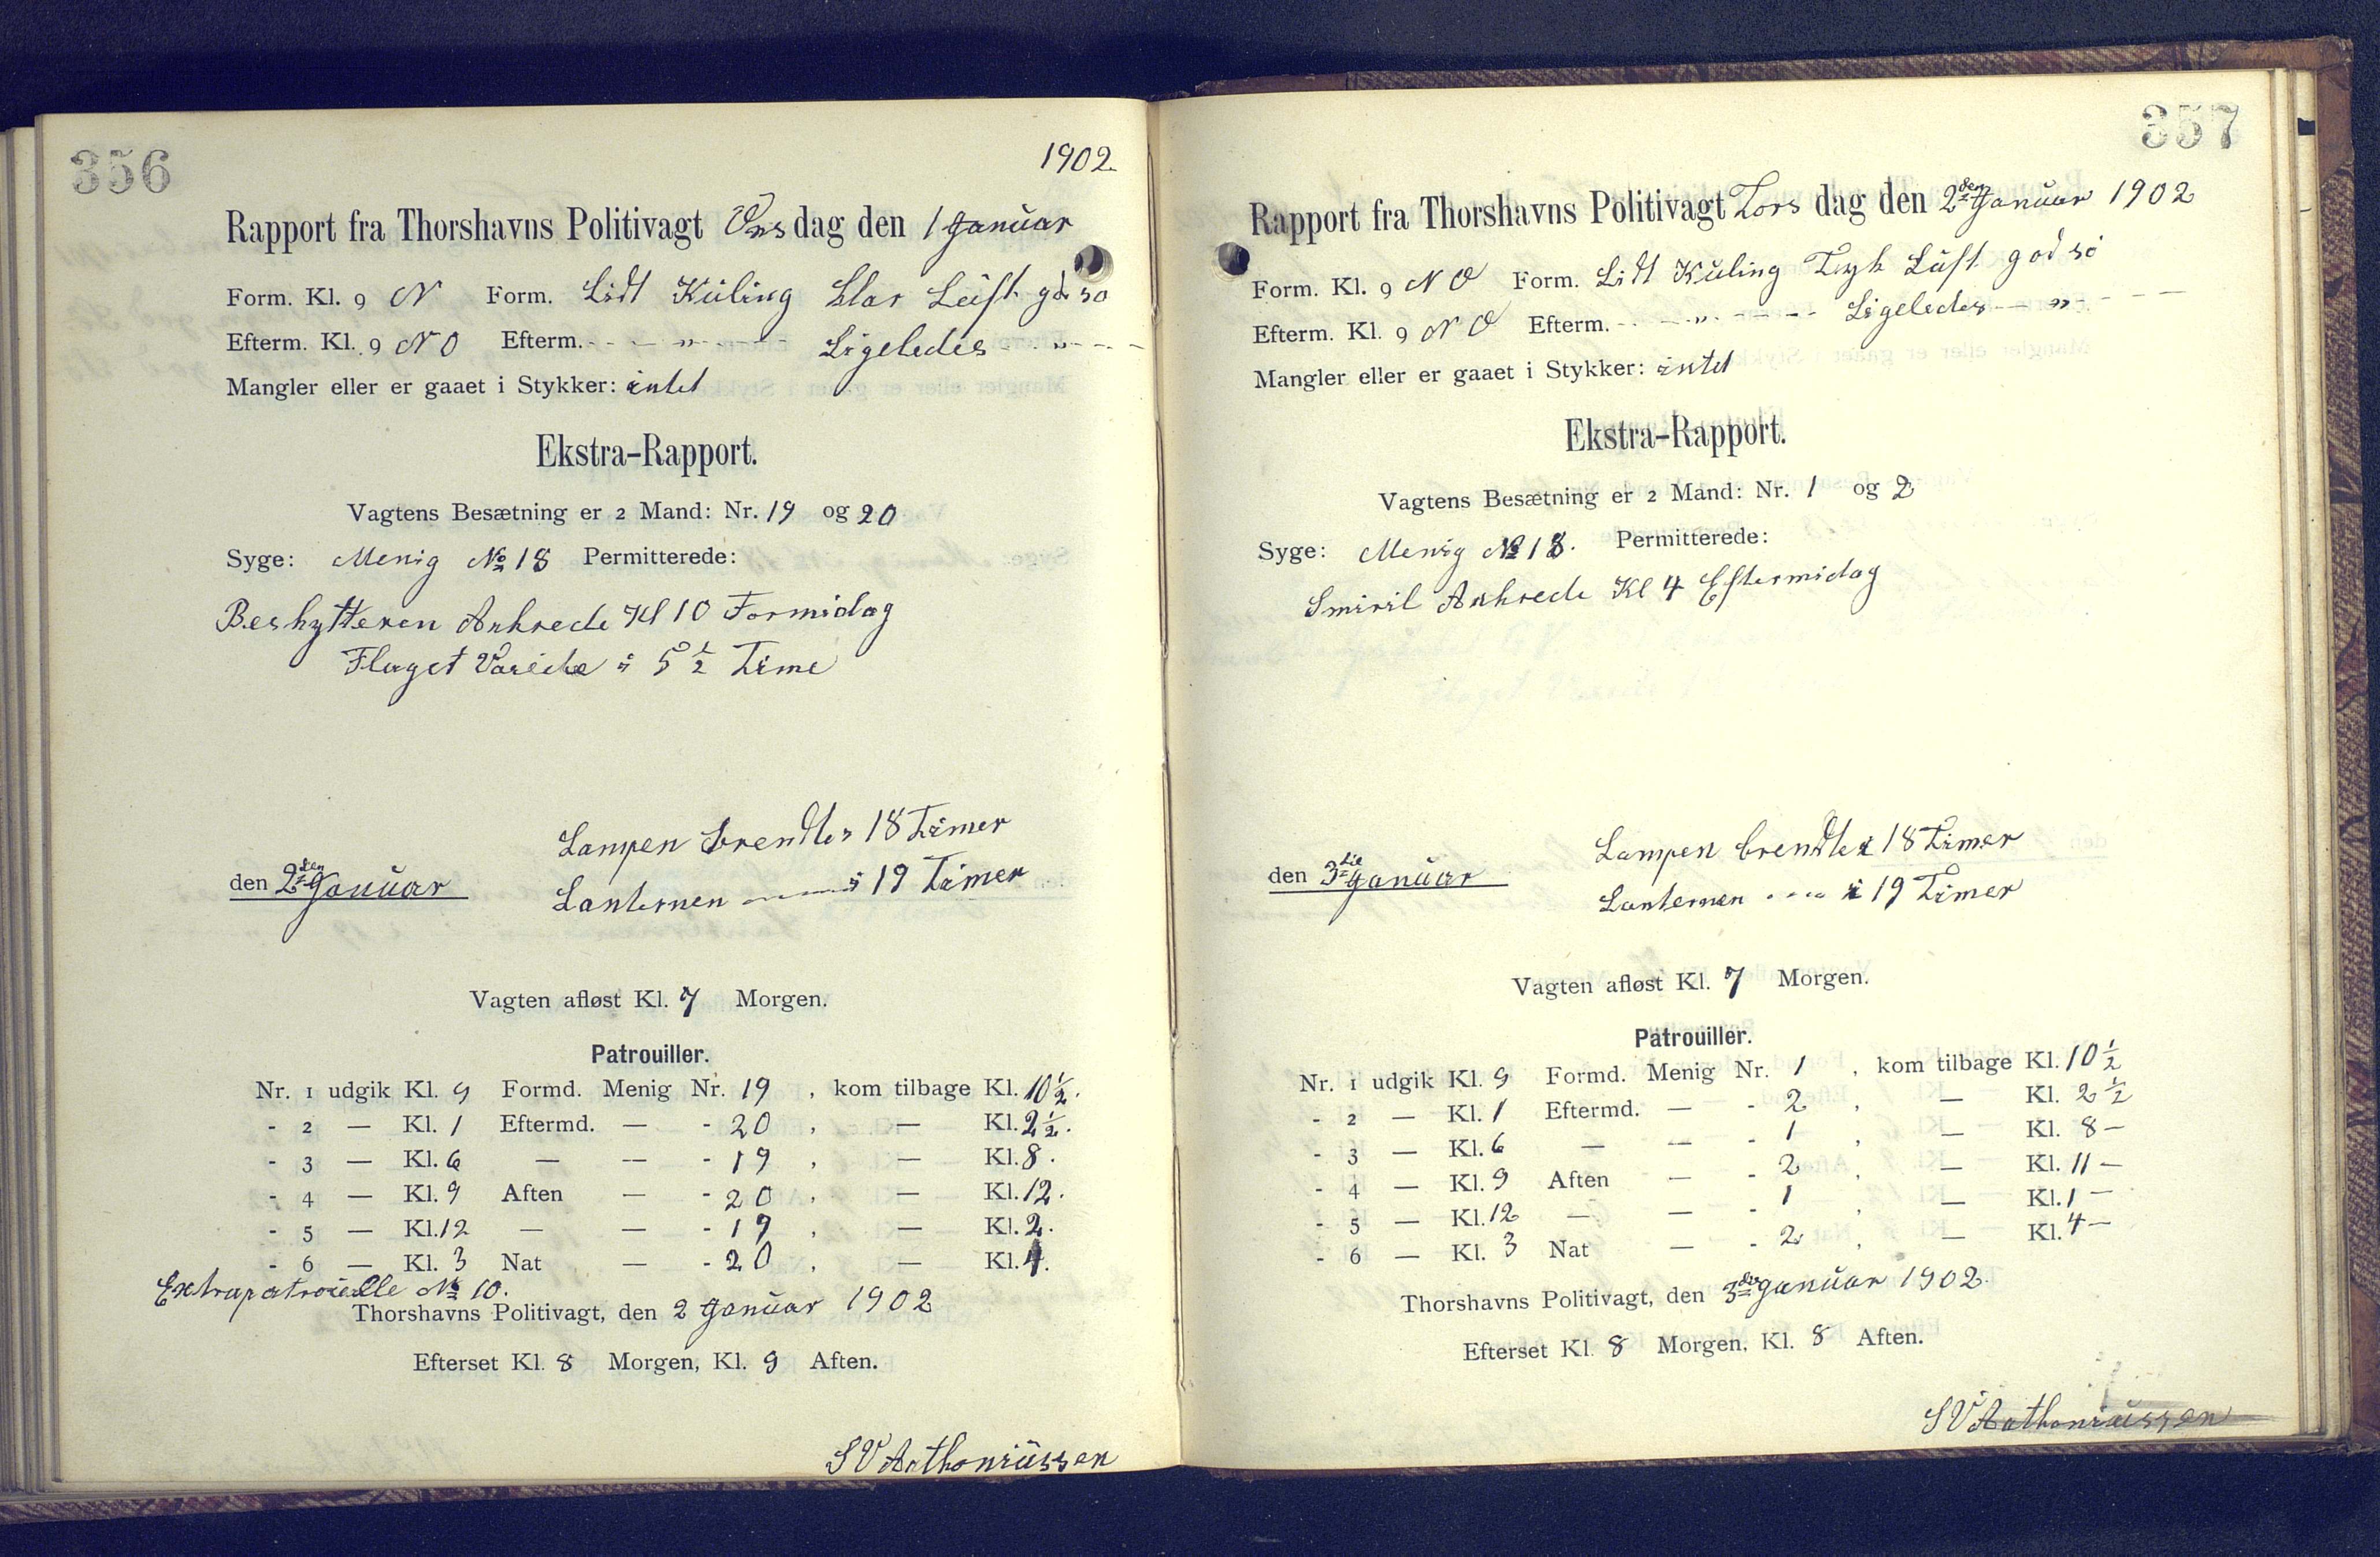 356
1902.
Rapport fra Thorshavns Politivagt Onsdag den 1 Januar
Form. Kl. 9 N Form. Lidt Kuling Klar Luft god sø
Efterm. Kl. 9 NO Efterm. - - - " - - - Ligeledes - - " - - -
Mangler eller er gaaet i Stykker: intet
Ekstra-Rapport.
Vagtens Besætning er 2 Mand: Nr. 19 og 20
Syge: Menig No 18 Permitterede:
Beskytteren Ankrede Kl 10 Formidag
Flaget Vaiede i 5 1/2 Time
Lampen brendte i 18 Timer
den 2den Januar
Lanternen — — i 19 Timer
Vagten afløst Kl. 7 Morgen.
Patrouiller.
Nr. 1 udgik Kl. 9 Formd. Menig Nr. 19 , kom tilbage Kl. 10 1/2.
- 2 — Kl. 1 Eftermd. — - 20 , — Kl. 2 1/2.
- 3 — Kl. 6 — — - 19 , — Kl. 8.
- 4 — Kl. 9 Aften — - 20 , — Kl. 12.
- 5 — Kl. 12 — — - 19 , — Kl. 2.
- 6 — Kl. 3 Nat — - 20 , — Kl. 4.
Extrapatrouille No 10.
Thorshavns Politivagt, den 2 Januar 1902
Efterset Kl. 8 Morgen, Kl. 9 Aften.
SV Anthoniussen
357
Rapport fra Thorshavns Politivagt Tors dag den 2den Januar 1902
Form. Kl. 9 NO Form. Lidt Kuling Tyk Luft god sö
Efterm. Kl. 9 NO Efterm. - - - " - - - Ligeledes - - " - - -
Mangler eller er gaaet i Stykker: intet
Ekstra-Rapport.
Vagtens Besætning er 2 Mand: Nr. 1 og 2
Syge: Menig No 18. Permitterede:
Smiril Ankrede Kl 4 Eftermidag
Lampen brendte i 18 Timer
den 3die Januar
Lanternen - - - i 19 Timer
Vagten afløst Kl. 7 Morgen.
Patrouiller.
Nr. 1 udgik Kl. 9 Formd. Menig Nr. 1 , kom tilbage Kl. 10 1/2
- 2 — Kl. 1 Eftermd. — - 2 , — Kl. 2 1/2
- 3 — Kl. 6 — — - 1 , — Kl. 8 —
- 4 — Kl. 9 Aften — - 2 , — Kl. 11 —
- 5 — Kl. 12 — — - 1 , — Kl. 1 —
- 6 — Kl. 3 Nat — - 2 , — Kl. 4 —
Thorshavns Politivagt, den 3die Januar 1902.
Efterset Kl. 8 Morgen, Kl. 8 Aften.
SV Anthoniussen